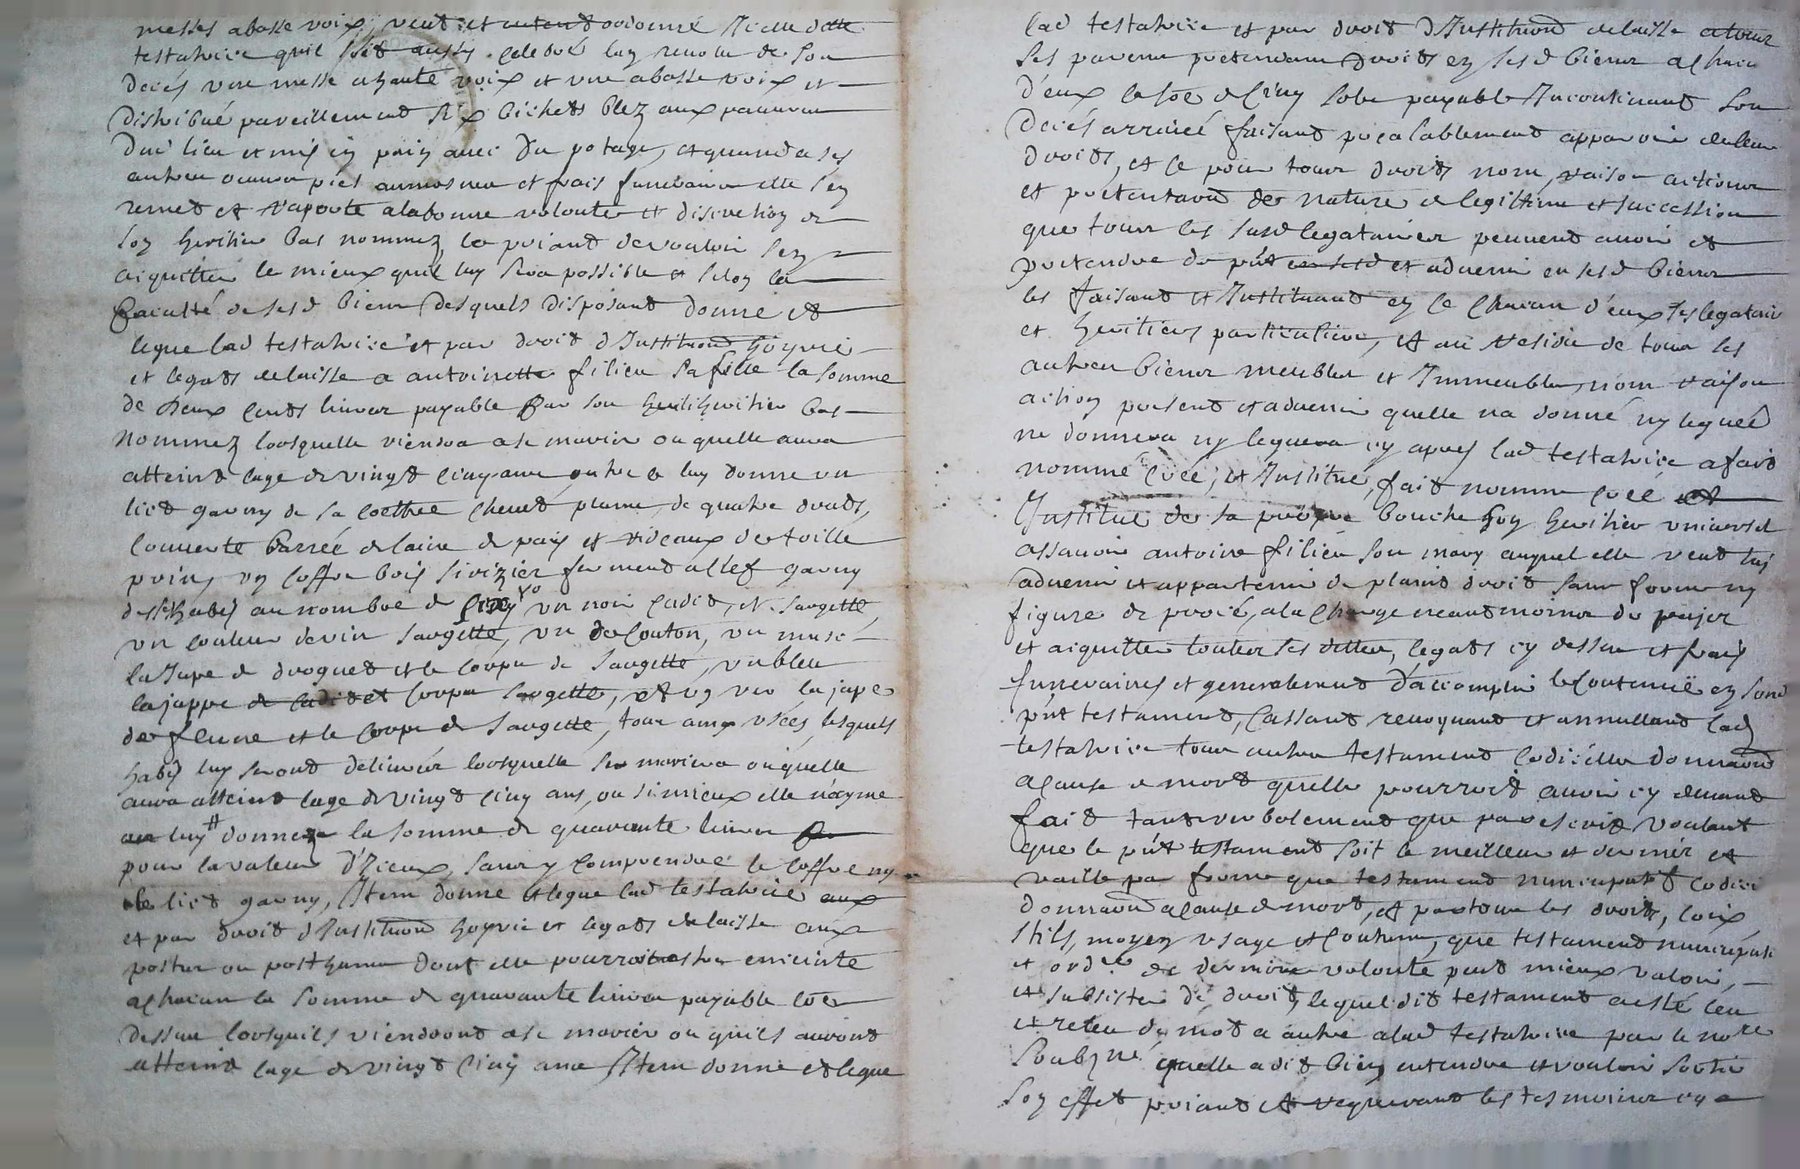 messes abasse voix, veut et entend ordonné Icelle dtte
testatrice quil soit aussy celebré luy revolu de son
decés une messe ahaute voix et une abasse voix et
distribué pareillement six bichets blez aux pauvres
dud lieu et mis en pain avec du potage, et quand a ses
autres œuvres pies aumosnes et frais funeraires elle sen
remet et raporte alabonne volonté et discretion de
son heritier bas nommez le priant de vouloir sen
aiquitter le mieux quil luy sera possible et selon la
faculté de sesd biens desquels disposant donne et
legue lad testatrice et par droit dInstitution hoyrie
et legats delaisse a antoinette filieu sa fille la somme
de deux cents livres payable par son heritier bas
nommez lorsquelle viendra ase marier ou quelle aura
atteint lage de vingt cinq ans outre ce luy donne un
lict garny de sa coettre chevet plume, de quatre drats,
couverte barrée delaine de pais et rideaux de toille
prins, un coffre bois sivizier fermant aclef garny
desses habis au nombre de cinq un noir cadis, et sargette
un couleur devin sargette, un de couton, un musc
la Jupe de droguet et le corps de sargette, un bleu
lajuppe de cadis et corps sargette, et un vers la jupe
de fleure et le corps de sargette, tous ainsy usées lesquels
habis luy seront delivrés lorsquelle se mariera ou quelle
aura atteint lage de vingt cinq ans, ou si mieux elle n'ayme
luy donnera la somme de quarante livres
pour lavaleur d'Iceux, sans y comprendre le coffre ny
le lict garny, Item donne et legue lad testatrice aux
et par droit dInstitution hoyrie et legats delaisse aux
postus ou posthume dont elle pourroit estre enceinte
achacun la somme de quarante livres payable comme
dessus lorsquils viendront ase marier ou quils auront
atteint lage de vingt cinq ans Item donne et legue
lad testatrice et par droit dInstitution delaisse atous
ses parens pretendans droits en sesd biens achacun
d'eux la soe de cinq sols payable Incontinant son
decés arrivée faisant prealablement apparoir deleurs
droits, et ce pour tous droits nom, raison actions
et pretentions de nature delegitime et succession
que tous les susd legataires peuvent avoir et
pretendre du pnt et advenir en sesd biens
les faisant et Instituant en ce chacun d'eux ses legatair
et heritiers particuliers, et au residu de tous les
autres biens meubles et Immeubles, nom raison
action present et advenir quelle na donné ny legueé
ne donnera ny leguera cy apres lad testatrice afait
nommé creé, et Institué, fait nomme creé et
Institue de sa propre bouche son heritier universel
assavoir antoine filieu son mary auquel elle veut ses
advenir et appartenir de plaint droit sans forme ny
figure de procé, ala charge neantmoins de payer
et aiquitter toutes ses dettes, legats cy dessus et frais
funeraires et generalement d'accomplir le contenüe en son
pnt testament, cassant revoquant et annullant lad
testatrice tous autres testament codicilles donnaons
acause de mort quelle pourroit avoir cy devant
fait tant verbalement que par escrit voulant
que le pnt testament soit le meilleur et dernier et
vaille par forme que testament nuncupatif codici
donnaon acause de mort, et partous les droits, loix
stils, moyens usage et coutume, que testament nuncupati
et ordce de derniere volonté peut mieux valoir,
et subsister de droit, lequel dit testament aesté leu
et releu de mot a autre alad testatrice par le nore
soubzné quelle a dit bien entendre et vouloir sortir
son effet priant et requerant les tesmoins cy